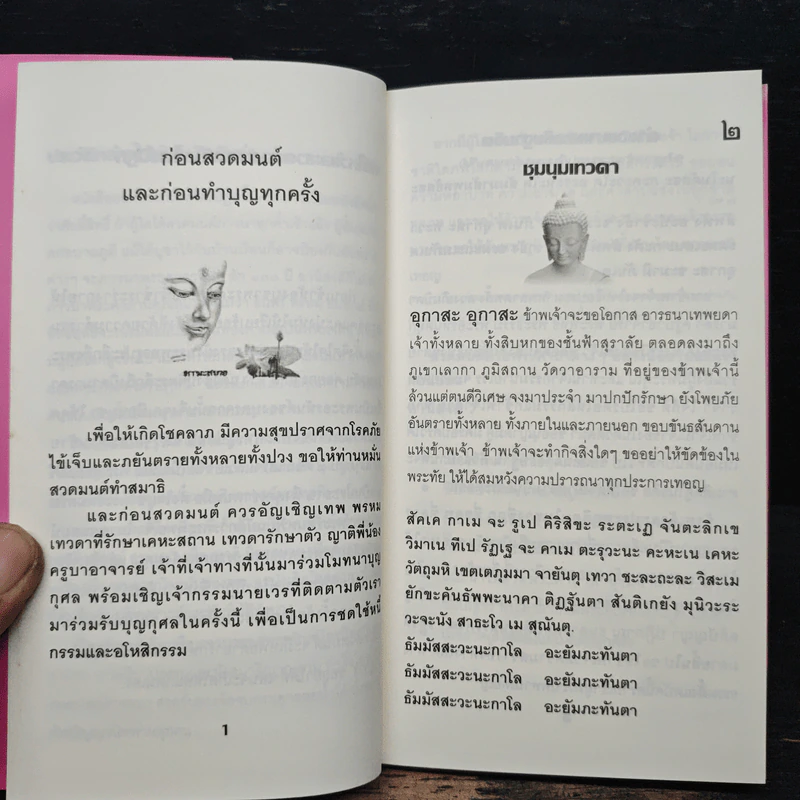 ก่อนสวดมนต์
และก่อนทำบุญทุกครั้ง
เพื่อให้เกิดโชคลาภ มีความสุขปราศจากโรคภัย
ไข้เจ็บและภยันตรายทั้งหลายทั้งปวง ขอให้ท่านหมั่น
สวดมนต์ทำสมาธิ
และก่อนสวดมนต์ ควรอัญเชิญเทพ พรหม
เทวดาที่รักษาเคหะสถาน เทวดารักษาตัว ญาติพี่น้อง
ครูบาอาจารย์ เจ้าที่เจ้าทางที่นั้นมาร่วมโมทนาบุญ
กุศล พร้อมเชิญเจ้ากรรมนายเวรที่ติดตามตัวเรา
มาร่วมรับบุญกุศลในครั้งนี้ เพื่อเป็นการชดใช้หนี้
กรรมและอโหสิกรรม
1
๒
ชุมนุมเทวดา
อุกาสะ อุกาสะ ข้าพเจ้าจะขอโอกาส อารธนาเทพยดา
เจ้าทั้งหลาย ทั้งสิบหกของชั้นฟ้าสุราลัย ตลอดลงมาถึง
ภูเขาเลากา ภูมิสถาน วัดวาอาราม ที่อยู่ของข้าพเจ้านี้
ล้วนแต่ตนดีวิเศษ จงมาประจำ มาปกปักรักษา ยังโพยภัย
อันตรายทั้งหลาย ทั้งภายในและภายนอก ขอบขันธสันดาน
แห่งข้าพเจ้า ข้าพเจ้าจะทำกิจสิ่งใดๆ ขออย่าให้ขัดข้องใน
พระทัย ให้ได้สมหวังความปรารถนาทุกประการเทอญ
สัคเค กาเม จะ รูเป คิริสิขะ ระตะเฏ จันตะลิกเข
วิมาเน ทีเป รัฏเฐ จะ คาเม ตะรุวะนะ คะหะเน เคหะ
วัตถุมหิ เขตเตภุมมา จายันตุ เทวา ชะละถะละ วิสะเม
ยักขะคันธัพพะนาคา ติฏฐันตา สันติเกยัง มุนิวะระ
วะจะนัง สาธะโว เม สุณันตุ.
ธัมมัสสะวะนะกาโล อะยัมภะทันตา
ธัมมัสสะวะนะกาโล อะยัมภะทันตา
ธัมมัสสะวะนะกาโล อะยัมภะทันตา